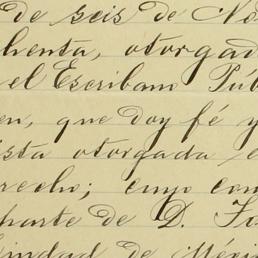 de seis de No
chenta, otorgad
el Escribano Púb
en, que doy fé y
ista otorgada e
recho; cuyo con
parte de D. Fr
iudad de Méxi